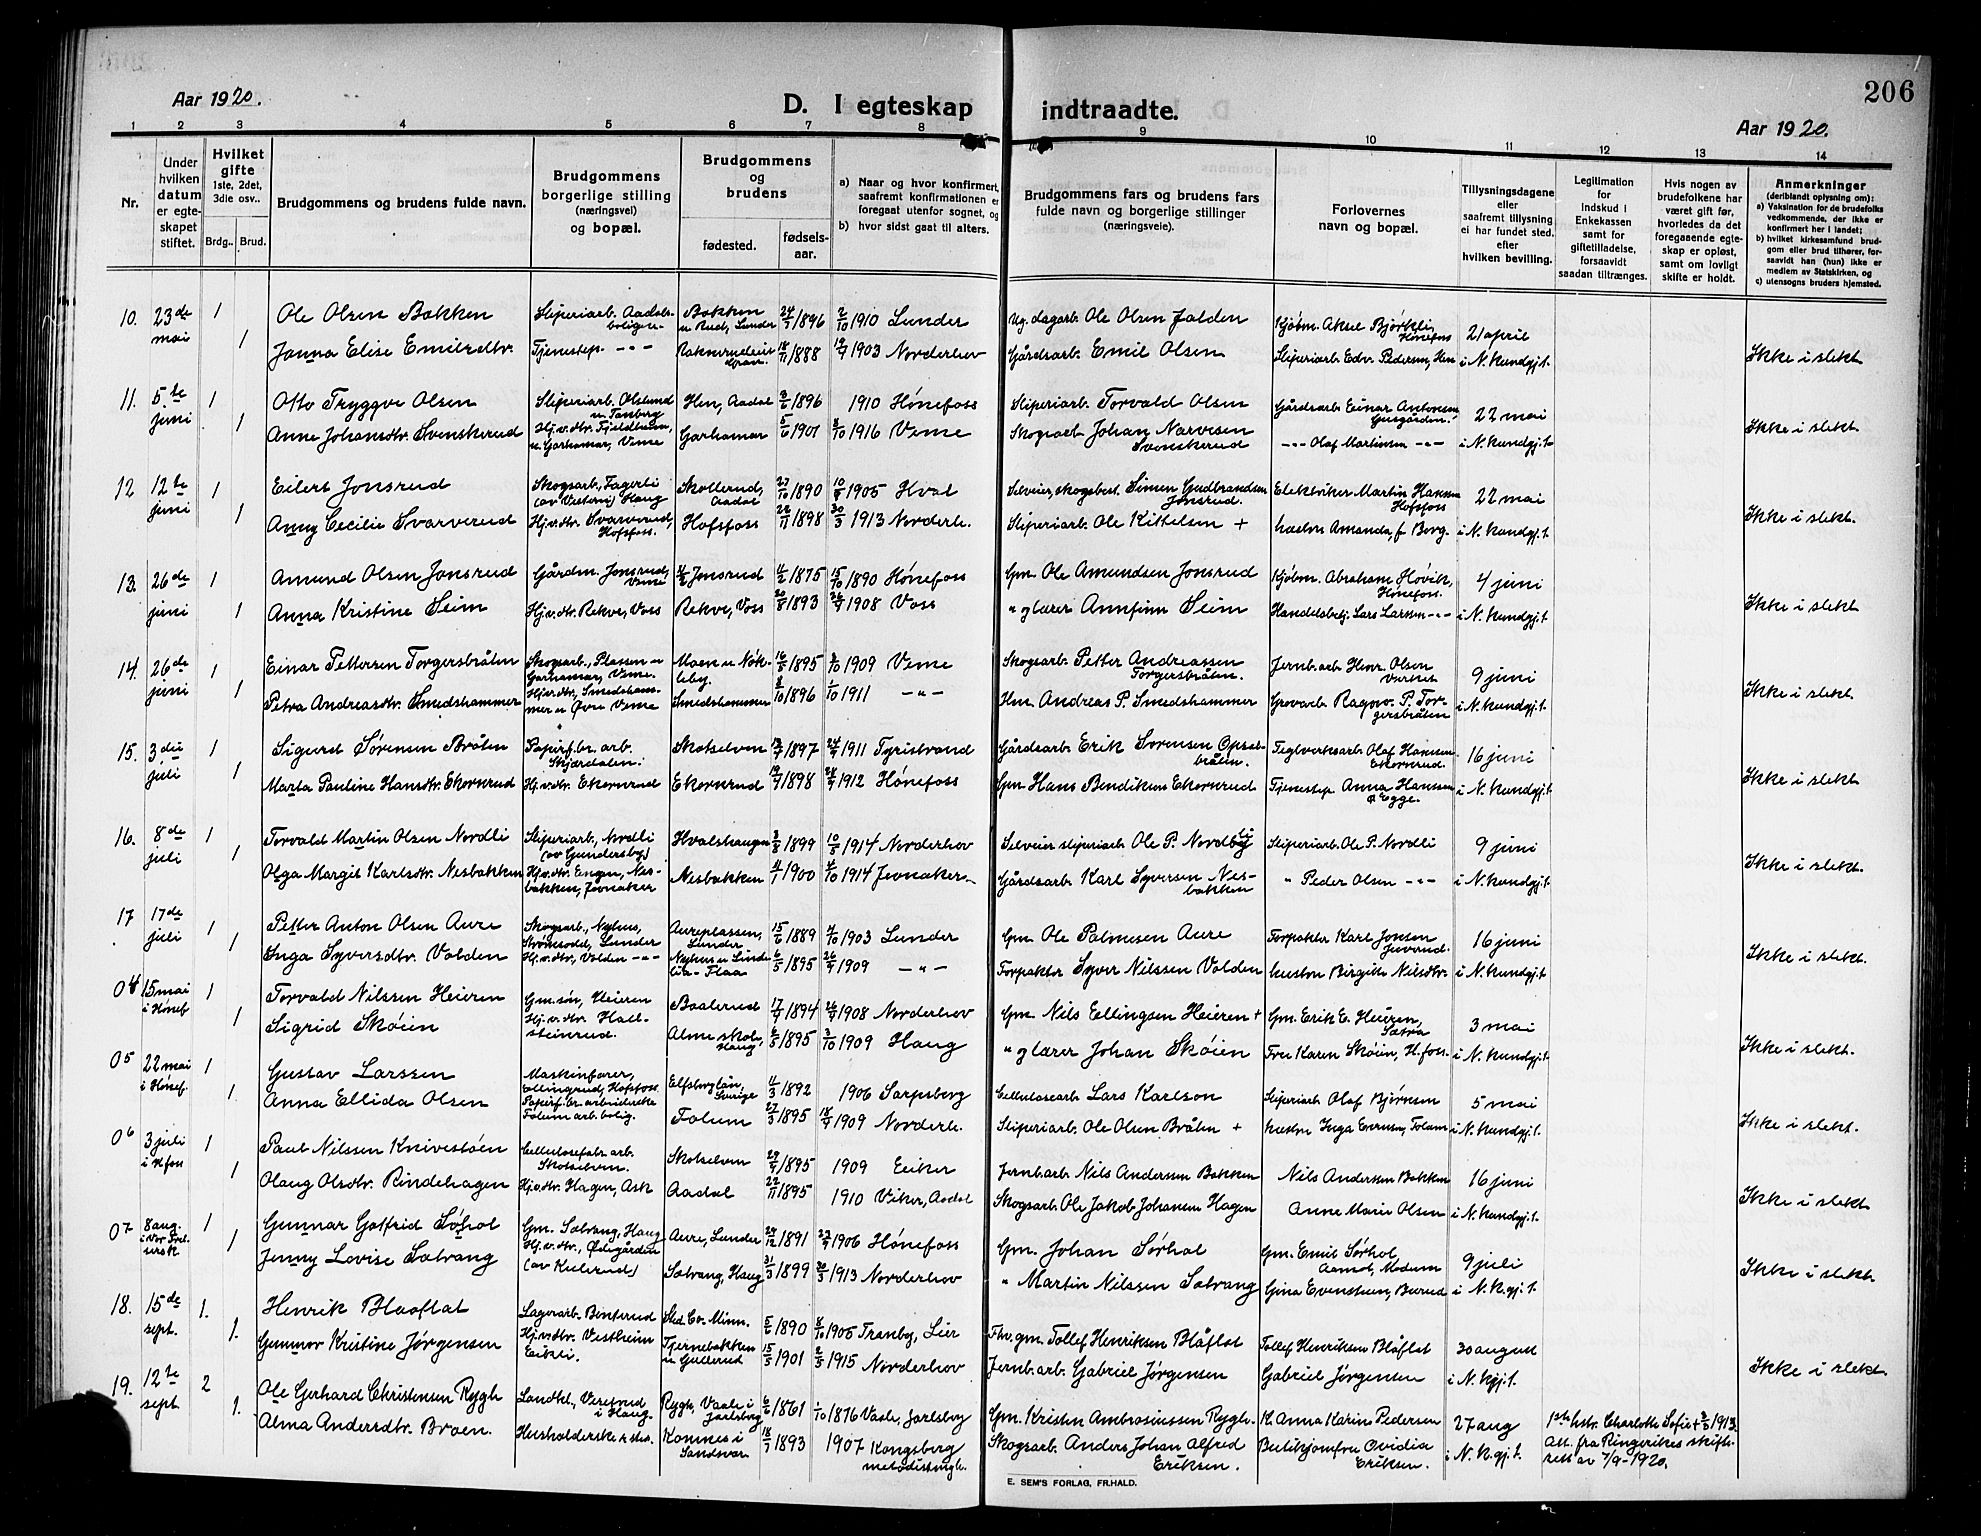 206
Aar 1920.
D. I egteskap indtraadte.
Aar 1920.
1 2 3 4 5 6 7 8 9 10 11 12 13 14
Nr.
Under hvilken datum er egteskapet stiftet.
Hvilket gifte 1ste, 2det, 3die osv..
Brdg.. Brud.
Brudgommens og brudens fulde navn.
Brudgommens borgerlige stilling (næringsvei) og bopæl.
Brudgommens og brudens
fødested. fødselsaar.
a) Naar og hvor konfirmert, saafremt konfirmationen er foregaat utenfor sognet, og
b) hvor sidst gaat til alters.
Brudgommens fars og brudens fars fulde navn og borgerlige stillinger (næringsveie).
Forlovernes navn og bopæl.
Tillysningsdagene eller saafremt tillysning ei har fundet sted, efter hvilken bevilling.
Legitimation for Indskud i Enkekassen samt for giftetilladelse, forsaavidt saadan tiltrænges.
Hvis nogen av brudefolkene har været gift før, hvorledes da det foregaaende egteskap er opløst, samt om lovligt skifte er holdt.
Anmerkninger (deriblandt oplysning om):
a) Vaksination for de brudefolks vedkommende, der ikke er konfirmert her i landet;
b) hvilket kirkesamfund brudgom eller brud tilhører, forsaavidt han (hun) ikke er medlem av Statskirken, og
c) utensogns bruders hjemsted.
10. 23de mai 1 Ole Olsen Bakken Sliperiarb. Aadalsboligen Bakken u Rud, Lunder 24/7 1896 2/10 1910 Lunder Ug. dagarb Ole Olsen Jalden Kjøbm. Aksel Bjørkli, Hønefoss 21 april
1 Janna Elise Emilsdtr. Tjenestep. -"- 18/11 1888 1903 Norderhov Gårdsarb. Emil Olsen Sliperiarb Edv. Pedersen, Hen i N. kundgj.t. Ikke i slekt
11. 5te juni 1 Otto Tryggve Olsen Sliperiarb. Hen, Aadal 3/6 1896 1910 Hønefoss Sliperiarb. Torvald Olsen Gårdsarb Einar Antonsen 22 mai
1 Anne Johansdtr. Svenskerud Hj.v.dtr. u. Garhamar, Veme Garhamar 5/6 1901 8/10 1916 Veme Skogsarb Johan Narvesen Svenskerud -"- Olaf Martinsen -"- i N. kundgj.t. Ikke i slekt.
12 12te juni 1 Eilert Jonsrud Skogsarb., Fagerli (av Vestern) Haug Skollerud, Aadal 27/10 1890 10/9 1905 Hval Selveier, skogsbest. Simen Gudbrandsen Jonsrud. Elektriker Martin Hansen Hofsfoss 22 mai
1 Anny Cecilie Svarverud Hj.v.dtr. Svarverud, Hofsfoss. Hofsfoss 22/11 1898 30/3 1913 Norderh. Sliperiarb. Ole Kittelsen + hustru Amanda, f Borg. i N. kundgj.t. Ikke i slekt.
13. 26de juni 1 Amund Olsen Jonsrud Gårdm. Jonsrud, Veme Jonsrud 4/2 1875 15/10 1890 Hønefoss Gm. Ole Amundsen Jonsrud Kjøbm. Abraham Høvik, Hønefoss. 4 juni
1 Anna Kristine Seim Hj.v.dtr. Rekve, Voss Rekve, Voss 20/8 1893 1908 Voss " og lærer Annfinn Seim Handelsbetj. Lars Larsen -"- i N. kundgj.t. Ikke i slekt.
14. 26de juni 1 Einar Pettersen Torgersbråten Skogsarb., Plassen u Garhamar, Veme. Moen u Nøkleby. 16/5 1895 3/10 1909 Veme Skogsarb. Petter Andreassen Torgersbråten. Jernb.arb Henr. Olsen 9 juni
1 Petra Andreasdtr. Smedshammer Hj.v.dtr., Smedshammer u Øvre Veme Smedshammer 8/10 1896 1/10 1911 -"- Hm. Andreas P. Smedshammer Grovarb. Ragnv. P. Torgersbråten i N. kundgj.t. Ikke i slekt.
15. 3die juli 1 Sigurd Sørensen Bråten Papirf.br. arb. Skjærdalen. Skotselven 1897 24/9 1911 Tyristrand Gårdsarb. Erik Sørensen Opsalbråten. Teglverksarb. Olaf Hansen Ekornrud. 16 juni
1 Marta Pauline Hansdtr. Ekornrud Hj.v.dtr. Ekornrud Ekornrud 19/9 1898 1912 Hønefoss Gm Hans Bendiksen Ekornrud Tjenestep Anna Hansen p Egge. i N. kundgj.t. Ikke i slekt
16. 8de juli 1 Torvald Martin Olsen Nordli Sliperiarb., Nordli (av Gundersby) Hvalshaugen 3/8 1899 10/5 1914 Norderhov Selveier sliperiarb Ole P. Nordby Sliperiarb. Ole P. Nordli 9 juni
1 Olga Margit Karlsdtr. Nesbakken Hj.v.dtr. Engen, Nesbakken, Jevnaker Nesbakken 4/1 1900 4/10 1914 Jevnaker Gårdsarb. Karl Syversen Nesbakken " Peder Olsen -"- i N. kundgj.t. Ikke i slekt.
17 17de juli 1 Petter Anton Olsen Aure Skogsarb., Nyhus, Strømsodd, Lunder Aureplassen, Lunder 15/6 1889 4/10 1903 Lunder Gm. Ole Palmesen Aure Forpakter Karl Jonsen 16 juni
1 Inga Syversdtr. Volden Hj.v.dtr, Volden -"- Flaa 6/5 1895 26/9 1909 -"- Forpakter Syver Nilssen Volden hustru Birgitte Nilsdtr. i N. kundgj.t. Ikke i slekt.
04 15 mai i Hønef 1 Torvald Nilssen Heieren Gm.søn, Heieren Baalerud 17/9 1894 1908 Norderhov Gm. Nils Ellingsen Heieren + Gm. Erik E. Heieren, Sætra 3 mai
1 Sigrid Skøien Hj.v.dtr. Hallsteinrud. Alme skole, Haug 6/5 1895 3/10 1909 Haug " og lærer Johan Skøien Fru Karen Skøien, H.foss. i N. kundgj.t Ikke i slekt.
05 22 mai i Hønef. 1 Gustav Larssen Maskinfører, Ellingrud, Hofsfoss Elfsborglän, Sverige 4/3 1892 1906 Sarpsborg Cellulosearb Lars Karlson Sliperiarb Olaf Bjørksen 5 mai
1 Anna Ellida Olsen Papirf.br. arbeiderske Follum arb.bolig. Follum 27/3 1895 18/4 1909 Norderh. Sliperiarb. Ole Olsen Bråten + hustru Inga Evensen, Follum i N. kundgj.t. Ikke i slekt.
06 3 juli i H foss 1 Paul Nilssen Knivestøen Cellulosefabr. arb. Skotselven. Skotselven 29/9 1895 1909 Eiker Jernb.arb Nils Andersen Bakken Nils Andersen Bakken 16 juni
1 Olaug Olsdtr. Rindehagen Hj.v.dtr. Hagen, Ask Aadal 22/11 1895 1910 Viker, Aadal Skogsarb. Ole Jakob Johansen Hagen Anne Marie Olsen i N. kundgj.t. Ikke i slekt
07 8 aug. i Vor Frelsersk 1 Gunnar Gotfrid Sørhol Gm. Sølvang, Haug Aure, Lunder 24/12 1891 1906 Hønefoss Gm. Johan Sørhol Gm. Emil Sørhol, Aamot, Modum 9 juli
1 Jenny Lovise Solvang Hj.v.dtr., Ødegården Solvang, Haug 31/3 1899 30/3 1913 Norderhov " Martin Nilssen Solvang Gina Evensteen, Bærud i N. K.gj.t. Ikke i slekt
18. 15de sept. 1. Henrik Blaaflat Lagerarb. Benterud Sted Co. Minn. 5/6 1890 8/10 1905 Tranby, Lier Fhv. gm. Tollef Henriksen Blåflat Tollef Henriksen Blåflat 30 august
1. Gunnvor Kristine Jørgensen Hj.v.dtr. Vestheim Eikli. Tjernebakken u Gullerud 15/5 1901 2/5 1915 Norderhov Jernb.arb. Gabriel Jørgensen Gabriel Jørgensen i N. kgj.t. Ikke i slekt
19. 12te sept 2 Ole Gerhard Christensen Rygh Landhl., Veserud i Haug. Rygh, Vaale i Jarlsberg 6/6 1861 1/10 1876 Vaale, Jarlsberg Gm. Kristen Ambrosiussen Rygh. K. Anna Karin Pedersen 27 aug 1ste hstr. Charlotte Sofie + 1913. Att. fra Ringerikes skifterett av 7/9-1920.
1. Alma Andersdtr. Broen. Husholderske s sted. Komnes i Sandsvær 18/7 1893 1907 Kongsberg metodistmgh. Skogsarb. Anders Johan Alfred Eriksen. Butikjomfru Ovidia Eriksen. i N. K.gj.t.
E. SEM'S FORLAG, FR.HALD.